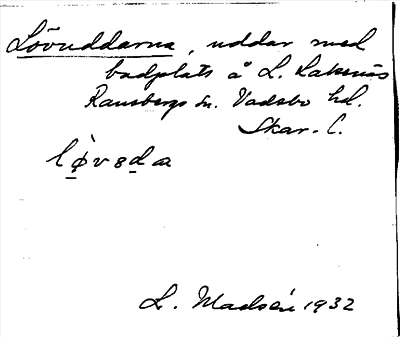 Lövuddarna, uddar med
badplats å L. Laksnäs
Ransbergs sn. Vadsbo hd.
Skar. l.
lø̀vsda
L. Madsén 1932